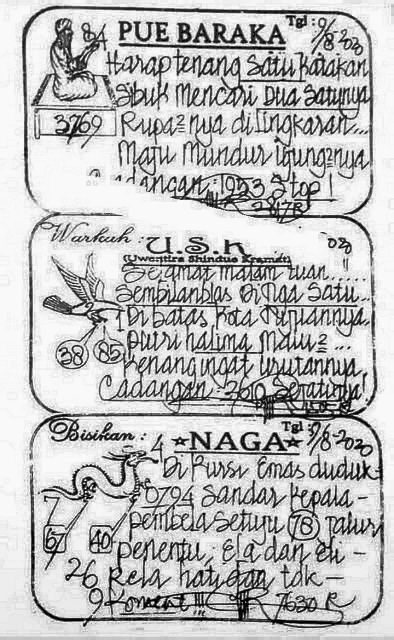 PUE BARAKA
Tgl: 9/8-2020
84
Harap tenang Satu katakan
Sibuk Mencari Dua Satunya
3769
Rupa2nya dilingkaran...
Maju Mundur Ujung2nya
Cadangan: 1953 Stop!
2817 R
Warkah: U.S.K
(Uwentira Shindue Kramat)
20
Selamat malam tuan.....
Sembilanblas Di Tiga Satu..
Di batas kota Tujuannya
Putri halima Malu2...
38 85
Kenang ingat urutannya
Cadangan: 3610 Seratus%!
Bisikan: NAGA
Tgl 9/8-2020
4
Di Kursi Emas duduk-
0794 Sandar Kepala-
7
Pembela Setuju 78 Jalur
67 40
Penentu, Ela dan Eli-
26 Rela hati dan tdk-
9 Koment !!!
7630 R